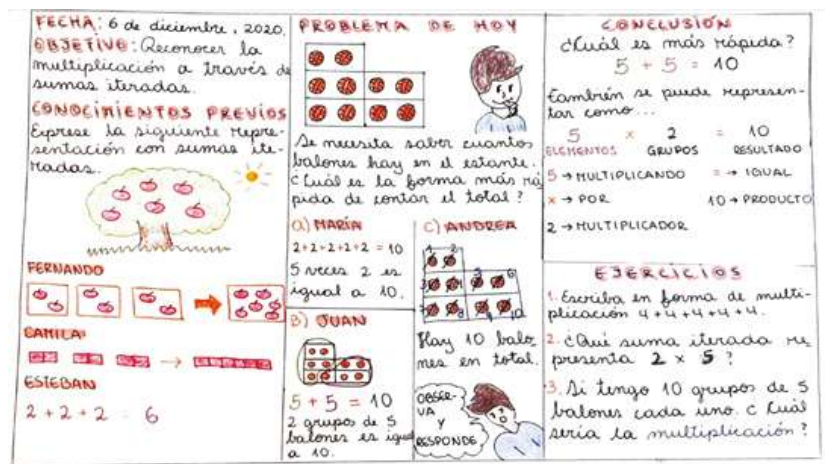 FECHA: 6 de diciembre, 2020.
OBJETIVO: Reconocer la
multiplicación a través de
sumas iteradas.
CONOCIMIENTOS PREVIOS
Exprese la siguiente repre-
sentación con sumas ite-
radas.
FERNANDO
CAMILA
ESTEBAN
2 + 2 + 2 = 6
PROBLEMA DE HOY
Se necesita saber cuantos
balones hay en el estante.
¿Cuál es la forma más rá
pida de contar el total?
a) MARÍA
2+2+2+2+2 = 10
5 veces 2 es
igual a 10.
B) JUAN
5 + 5 = 10
2 grupos de 5
balones es igual
a 10.
C) ANDREA
1 2
Hay 10 balo
nes en total.
OBSER-
VA
Y
RESPONDE
CONCLUSIÓN
¿Cuál es más rápida?
5 + 5 = 10
También se puede represen-
tar como...
5 x 2 = 10
ELEMENTOS GRUPOS RESULTADO
5 → MULTIPLICANDO = → IGUAL
x → POR 10 → PRODUCTO
2 → MULTIPLICADOR
EJERCICIOS
1. Escriba en forma de multi-
plicación 4+4+4+4+4.
2. ¿Qué suma iterada re
presenta 2 x 5?
3. Si tengo 10 grupos de 5
balones cada uno. ¿Cuál
sería la multiplicación?